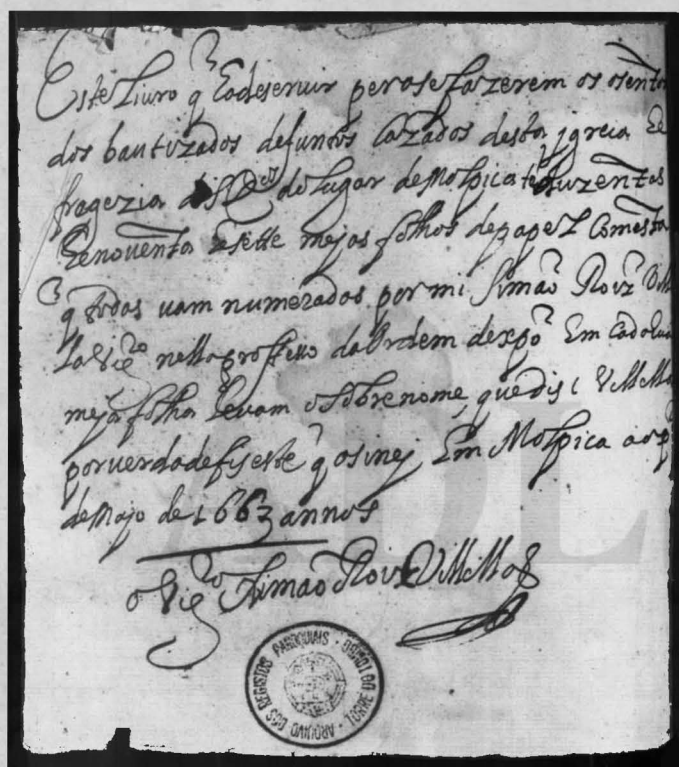 Este Liuro q̃ ha de seruir pera se fazerem os asentos
dos bautizados defuntos Cazados desta ygreia de
fragezia do lugar de Malpica tem duzentas
e nouenta e sette mejas folhas de papel Com esta
q̃ todas uam numeradas por mi Simaõ Roiz
Vigr.o nella professo da Ordem de xpõ Em Cada hua
meja folha leuam o sobrenome, que dis Villella
por uerdade fis este q̃ asinej Em Malpica aos
de Majo de 1663 annos
o Vigr.o Simaõ Roiz Villella
ARQUIVO DOS REGISTOS PAROQUIAIS · TORRE DO TOMBO ·
ADL